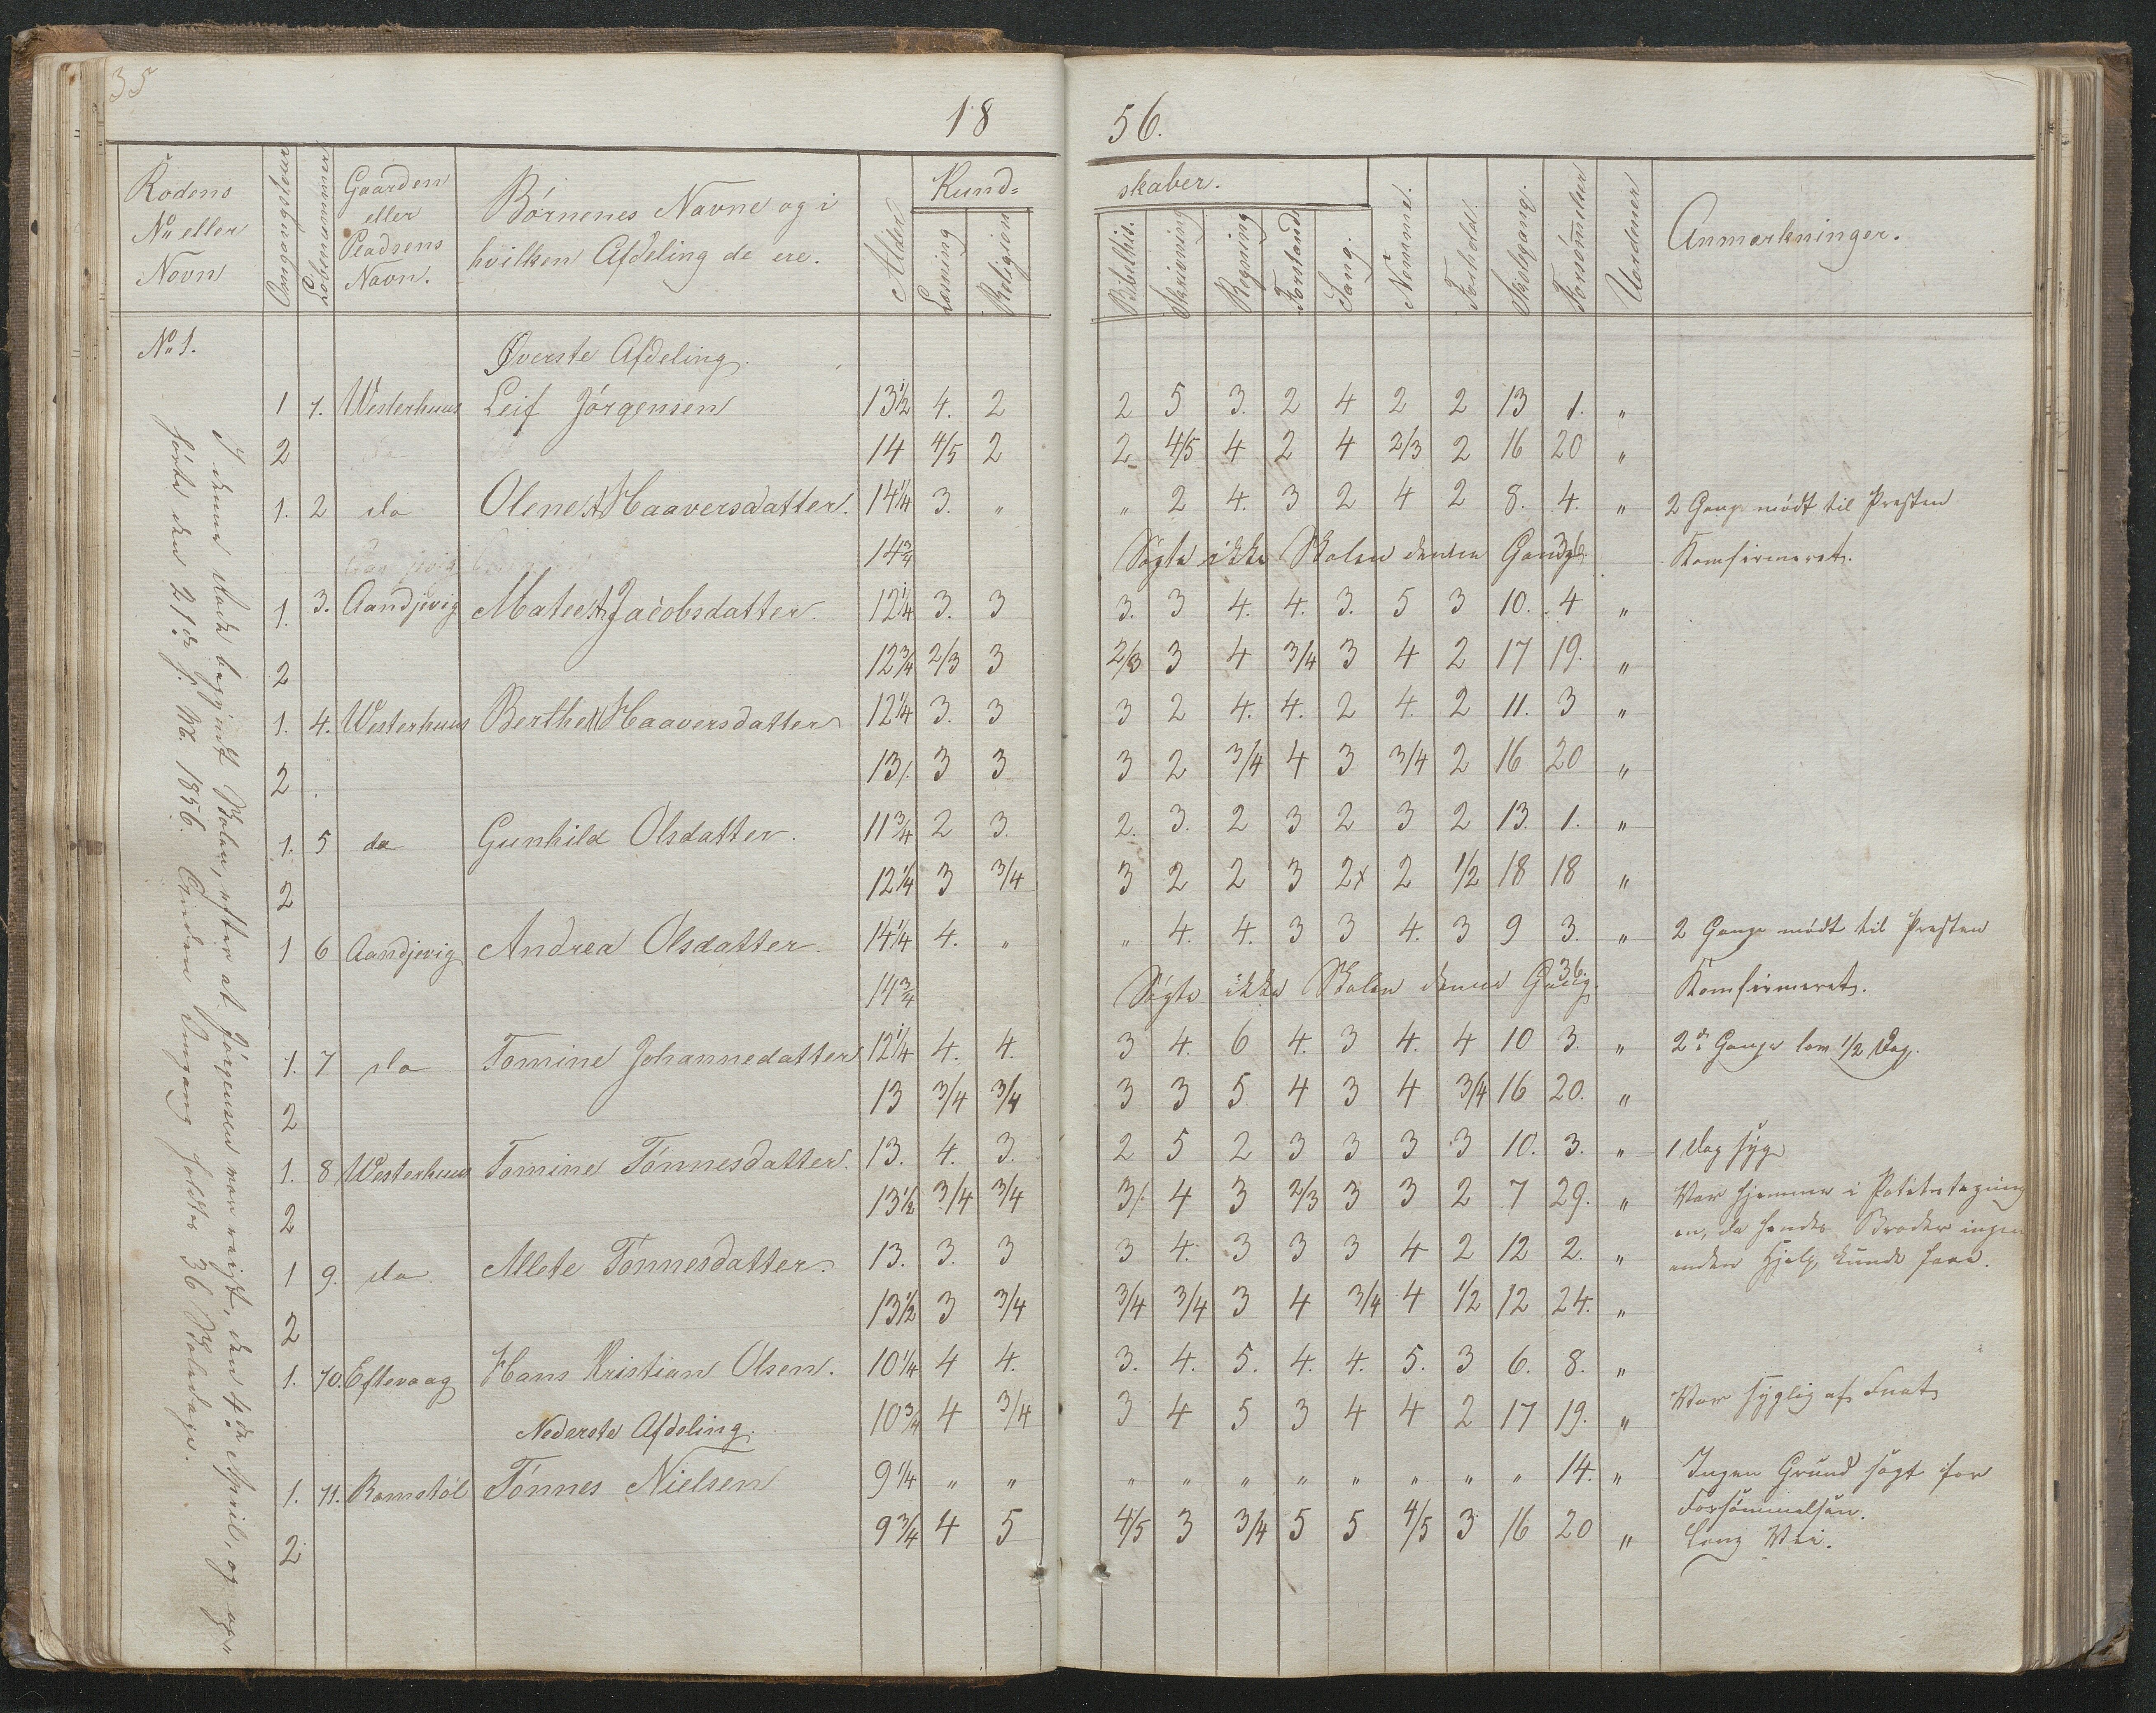 35
18 56.
Rodens No eller Navn | Omgangsfeier | Løbenummer | Gaarden eller Pladsens Navn. | Børnenes Navne og i hvilken Afdeling de ere. | Alder | Kundskaber. Læsning | Religion | Bibelhis. | Skrivning | Regning | Forstand | Sang. | Nemme. | Forhold. | Skolegang. | Forsømmelser | Uordener | Anmærkninger.
No 1. Øverste Afdeling.
1 1. Westerhuus Leif Jørgensen 13½ 4. 2 2 5 3. 2 4 2 2 13 1. "
2 14 4/5 2 2 4/5 4 2 4 2/3 2 16 20 "
1. 2 do Olene Haaversdatter. 14¼ 3. " " 2 4. 3 2 4 2 8. 4. " 2 Gange mødt til Presten
14¾ Søgte ikke Skolen denne Gang. Konfirmeret.
1. 3. Aandjevig Matee Jacobsdatter. 12¼ 3. 3 3. 3 4. 4. 3. 5 3 10. 4 "
2 12¾ 2/3 3 2/3 3 4 3/4 3 4 2 17 19. "
1. 4. Westerhuus Berthe Haaversdatter 12¼ 3. 3 3 2 4. 4. 2 4. 2 11. 3 "
2 13/. 3 3 3 2 3/4 4 3 3/4 2 16 20 "
1. 5 do Gunhild Olsdatter. 11¾ 2 3. 2. 3. 2 3 2 3 2 13. 1. "
2 12¼ 3 3/4 3 2 2 3 2x 2 1/2 18 18 "
1 6 Aandjevig Andrea Olsdatter. 14¼ 4. " " 4. 4. 3 3 4. 3 9 3. " 2 Gange mødt til Presten
14¾ Søgte ikke Skolen denne Gang. 36. Konfirmeret.
1. 7 do Tomine Johannedatter 12¼ 4. 4. 3 4. 6 4. 3 4. 4 10 3. " 2de Gange kom 1/2 Dag.
2 13 3/4 3/4 3 3 5 4 3 4 3/4 16 20. "
1. 8 Westerhuus Tomine Tønnesdatter. 13. 4. 3. 2 5 2 3 3 3 3 10. 3. " 1 Dag syg
2 13½ 3/4 3/4 3/. 4 3 2/3 3 3 2 7 29. " Var hjemme i Potetestagning
en, da hendes Broder ingen
1 9. do Allete Tønnesdatter. 13. 3. 3 3 4. 3 3 3 4 2 12 2. " anden Hjelp kunde faae.
2 13½ 3 3/4 3/4 3/4 3 4 3/4 4 1/2 12 24. "
1. 10. Eftevaag Hans Kristian Olsen. 10¼ 4 4. 3. 4. 5. 4. 4. 5. 3 6. 8. "
10¾ 4 3/4 3 4 5 3 4 4 2 17 19. " Var syglig af Fnat
Nederste Afdeling.
1. 11. Romstøl Tønnes Nielsen 9¼ " " " " " " " " " " 14. " Ingen Grund søgt for
Forsømmelsen.
2 9¾ 4 5 4/5 3 3/4 5 5 4/5 3 16 20 " Lang Vei.
I denne Rode begyndt Skolen, efter at Jørgensen var reist, den 4de April, og op-
hørte den 21de s. M. 1856. Anden Omgang holdtes 36 Skoledage.